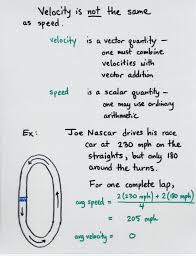 Velocity is not the same
as speed.
velocity is a vector quantity –
one must combine
velocities with
vector addition
speed is a scalar quantity –
one may use ordinary
arithmetic
Ex: Joe Nascar drives his race
car at 230 mph on the
straights, but only 180
around the turns.
For one complete lap,
avg speed = 2(230 mph) + 2(180 mph)
4
= 205 mph
avg velocity = 0